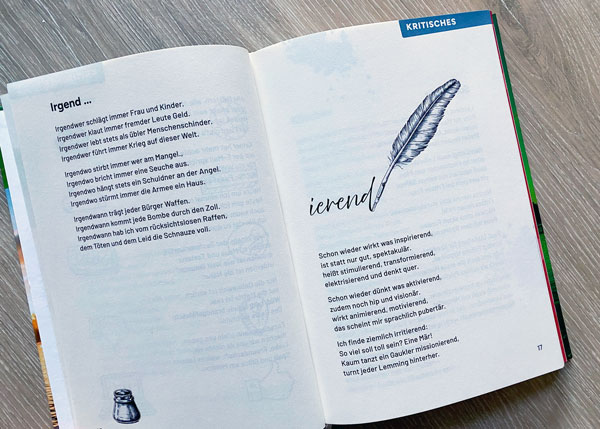 Irgend ...
Irgendwer schlägt immer Frau und Kinder.
Irgendwer klaut immer fremder Leute Geld.
Irgendwer lebt stets als übler Menschenschinder.
Irgendwer führt immer Krieg auf dieser Welt.
Irgendwo stirbt immer wer am Mangel...
Irgendwo bricht immer eine Seuche aus.
Irgendwo hängt stets ein Schuldner an der Angel.
Irgendwo stürmt immer die Armee ein Haus.
Irgendwann trägt jeder Bürger Waffen.
Irgendwann kommt jede Bombe durch den Zoll.
Irgendwann hab ich vom rücksichtslosen Raffen,
dem Töten und dem Leid die Schnauze voll.
KRITISCHES
ierend
Schon wieder wirkt was inspirierend,
ist statt nur gut, spektakulär.
heißt stimulierend, transformierend,
elektrisierend und denkt quer.
Schon wieder dünkt was aktivierend,
zudem noch hip und visionär.
wirkt animierend, motivierend,
das scheint mir sprachlich pubertär.
Ich finde ziemlich irritierend:
So viel soll toll sein? Eine Mär!
Kaum tanzt ein Gaukler missionierend,
turnt jeder Lemming hinterher.
17